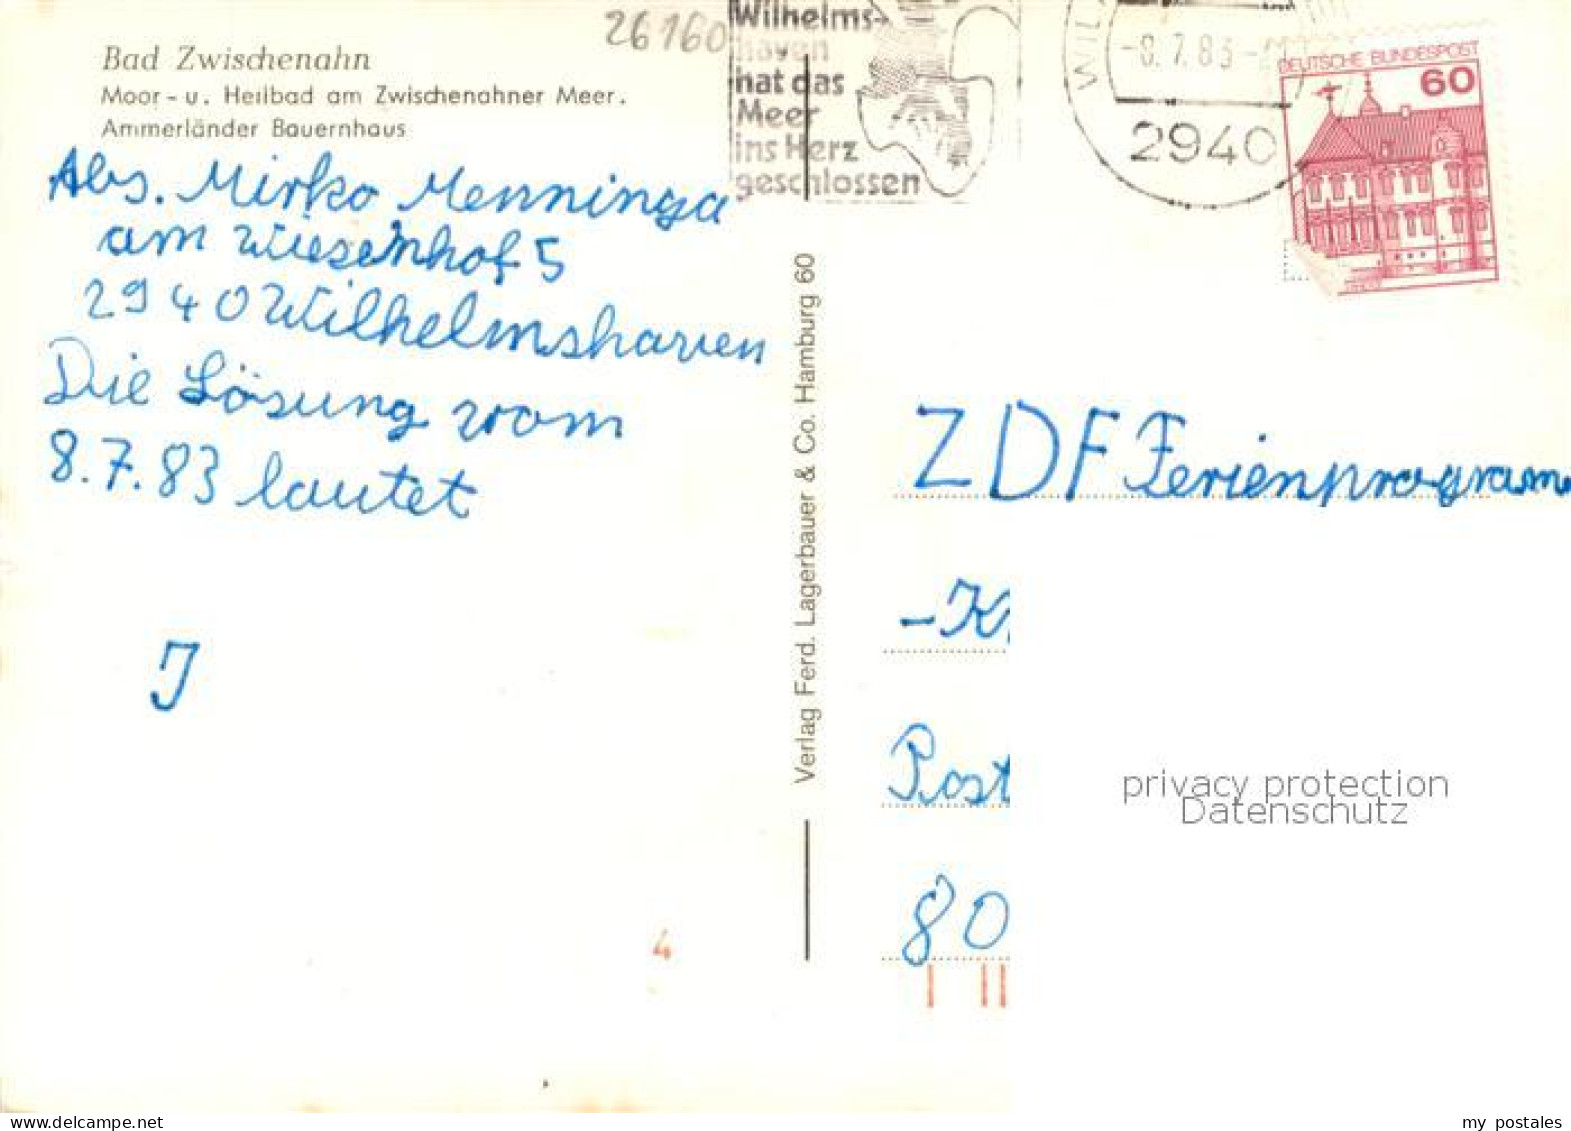 26160
Wilhelms-
haven
hat das
Meer
ins Herz
geschlossen
-8.7.83-
2940
DEUTSCHE BUNDESPOST
60
Bad Zwischenahn
Moor - u. Heilbad am Zwischenahner Meer.
Ammerländer Bauernhaus
Abs. Mirko Menninga
am Wiesenhof 5
2940 Wilhelmshaven
Die Lösung vom
8.7.83 lautet
J
4
Verlag Ferd. Lagerbauer & Co. Hamburg 60
ZDF Ferienprogram
Post
80
privacy protection
Datenschutz
Bad Zwischenahn
my postales